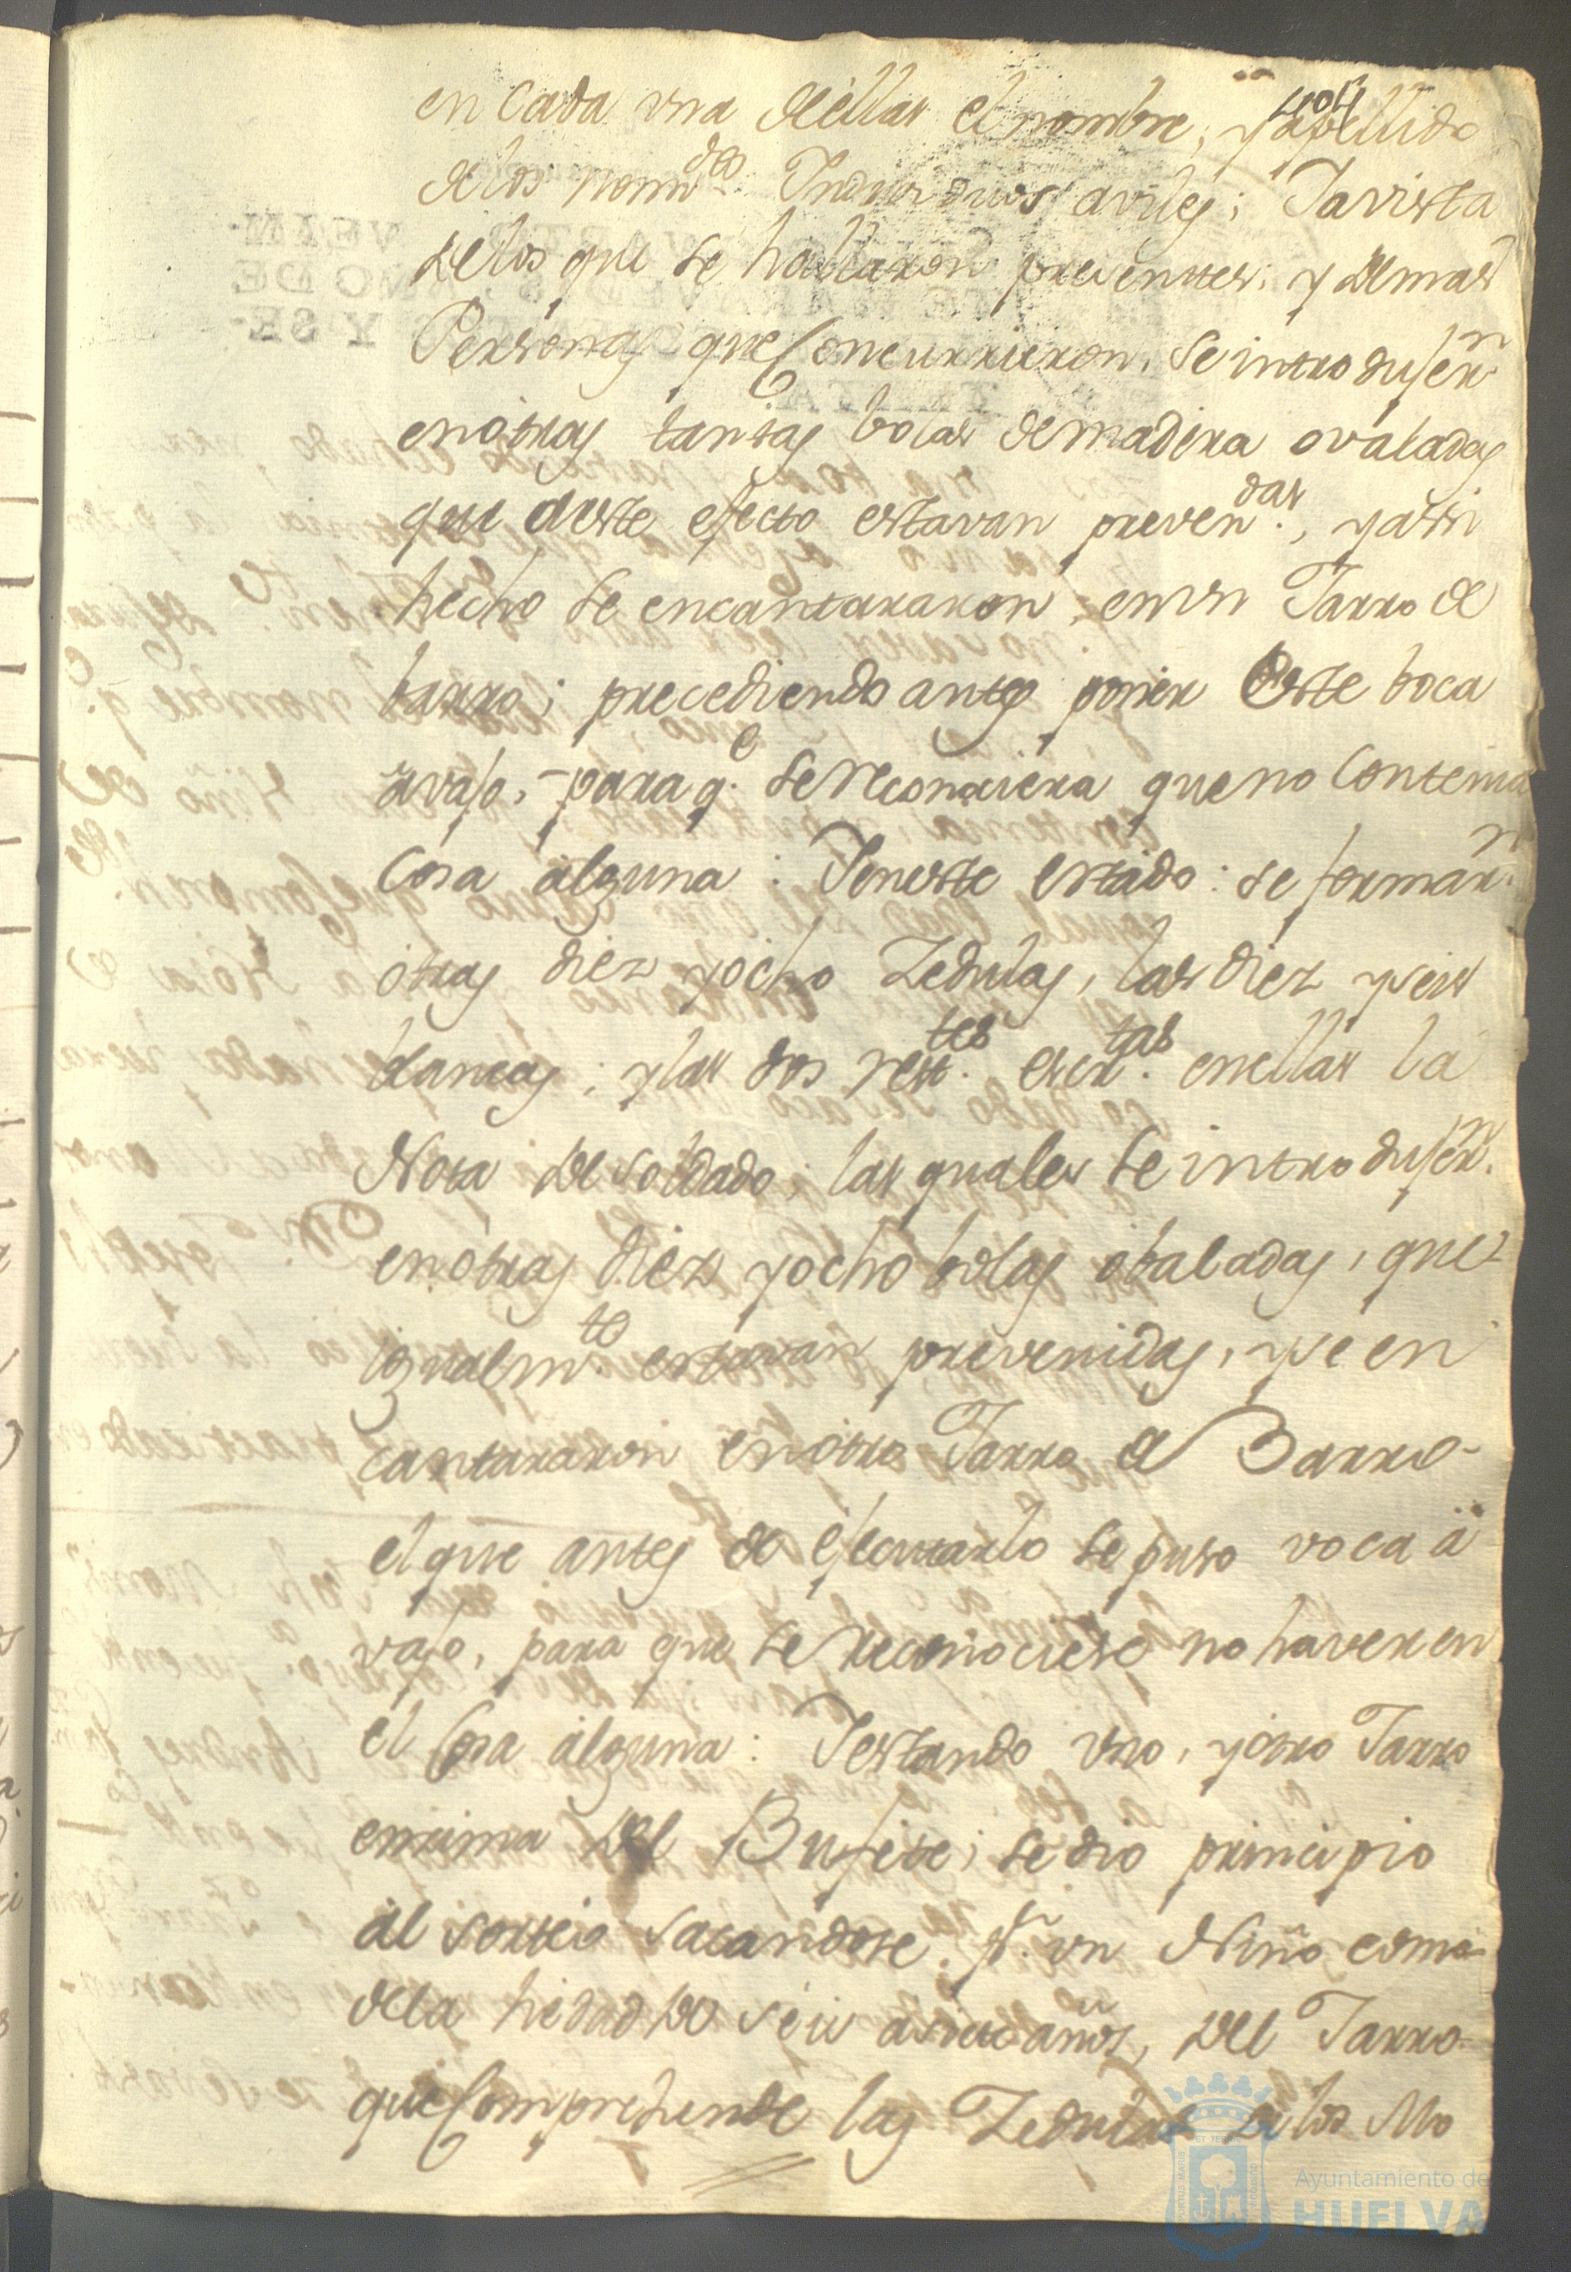 en cada una de ellas el nombre, y apellido
de los nomdos Individuos aviles; Ya vista
de los que se hallaron presenttes, y demas
Personas que Concurrieron, se introdujern
en otras tantas bolas de madera ovaladas
que a este efecto estavan prevendas, y assi
hecho se encantararon en un Tarro de
barro; precediendo antes poner Este boca
avajo, para qe se reconosiera que no Contenia
Cosa alguna: Y en este estado: se formarn
otras diez y ocho Zedulas, las diez y seis
blancas; y las dos resttes escrtas en ellas la
Nota de soldado, las quales se introdujern
en otras diez y ocho bolas obaladas, que
igualmte estavan prevenidas, y se en
cantararon en otro Tarro de Barro
el que antes de ejecutarlo se puso voca a
vajo, para que se reconociese no haver en
el Cosa alguna: Y estando uno, y otro Tarro
encima del Bufete; se dio principio
al sorteo sacandose pr un Niño como
de la hedad de seis a siete años, del Tarro
que Comprehende las Zedulas de los Mo
Ayuntamiento de
HUELVA